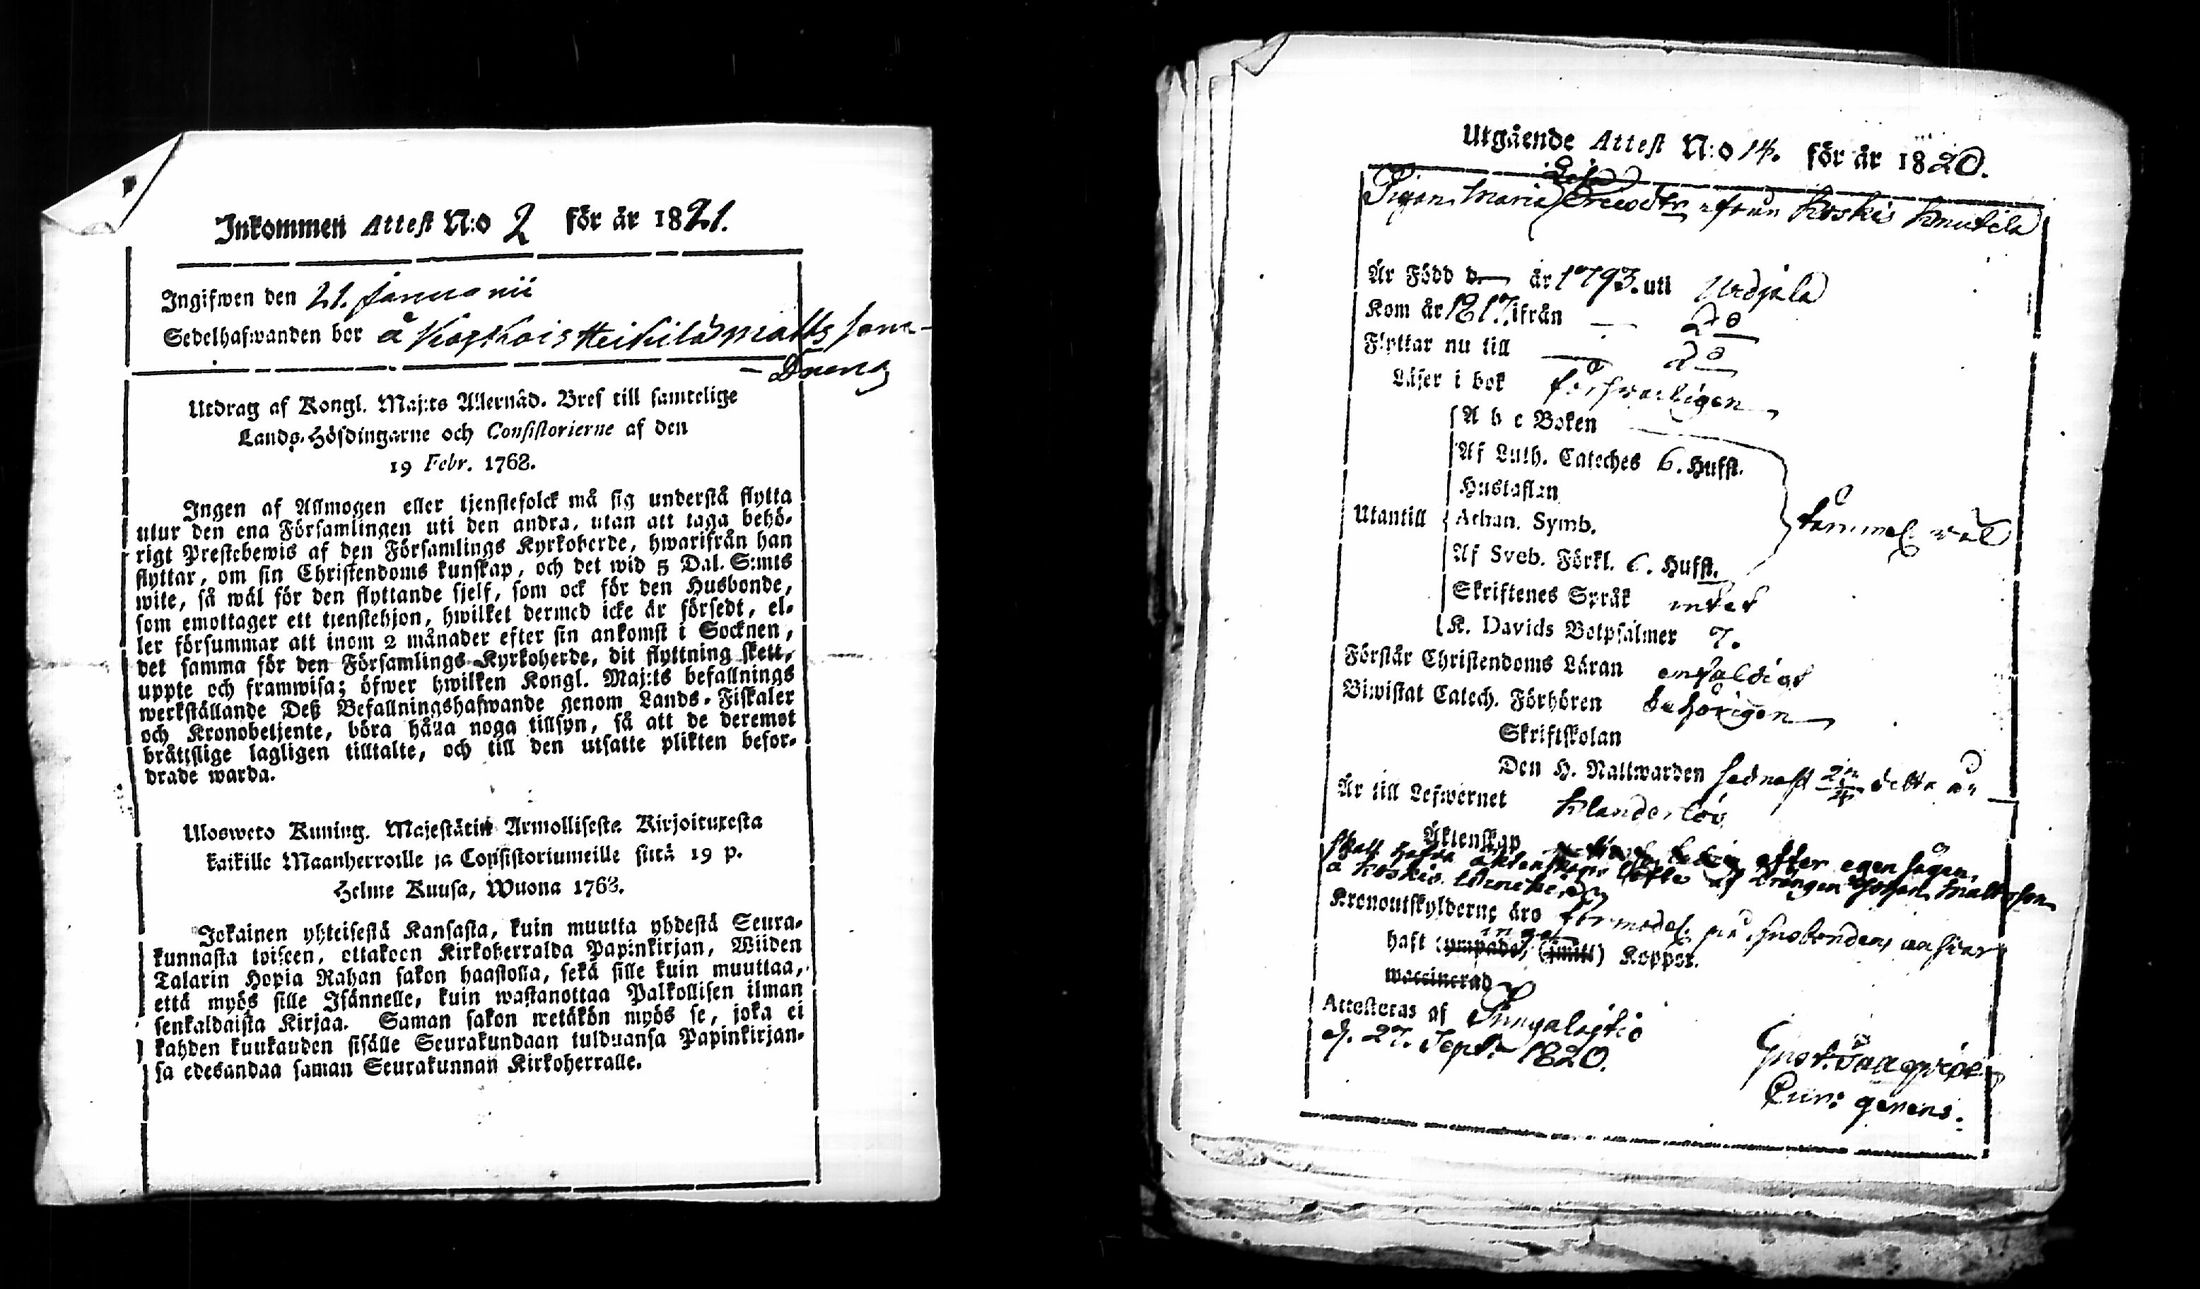 Inkommen Attest N:o 2 för år 1821.
Ingifwen den 21. Januarii
Sedelhafwanden bor å Heikilä Matts
Dreng
Utdrag af Kongl. Maj:ts Allernåd. Bref till samtelige
Lands-Höfdingarne och Consistorierne af den
19 Febr. 1768.
Ingen af Allmogen eller tjenstefolck må sig understå flytta
utur den ena Församlingen uti den andra, utan att taga behö-
rigt Prestebewis af den Församlings Kyrkoherde, hwarifrån han
flyttar, om sin Christendoms kunskap, och det wid 5 Dal. S:mts
wite, så wäl för den flyttande sjelf, som ock för den Husbonde,
som emottager ett tjenstehjon, hwilket dermed icke är försedt, el-
ler försummar att inom 2 månader efter sin ankomst i Socknen,
det samma för den Församlings Kyrkoherde, dit flyttning skett,
uppte och framwisa; öfwer hwilken Kongl. Maj:ts befallnings
werkställande Deß Befallningshafwande genom Lands-Fiskaler
och Kronobetjente, böra hålla noga tillsyn, så att de deremot
bråttslige lagligen tilltalte, och till den utsatte plikten befor-
drade warda.
Ulosweto Kuning. Majestätin Armollisesta Kirjoituxesta
kaikille Maanherroille ja Consistoriumeille siitä 19 p.
Helme Kuusa, Wuona 1768.
Jokainen yhteisestä Kansasta, kuin muutta yhdestä Seura-
kunnasta toiseen, ottakoon Kirkoherralda Papinkirjan, Wiiden
Talarin Hopia Rahan sakon haastolla, sekä sille kuin muuttaa,
että myös sille Isännelle, kuin wastanottaa Palkollisen ilman
senkaldaista Kirjaa. Saman sakon wetäkön myös se, joka ei
kahden kuukauden sisälle Seurakundaan tulduansa Papinkirjan-
sa edesandaa saman Seurakunnan Kirkoherralle.
Utgående Attest N:o 14. för år 1820.
Pigan Maria ifrån Koskis Knutila
Är Född d— år 1793. uti Urdiala
Kom år 1817. ifrån — do
Flyttar nu till — do
Läser i bok försvarligen
A b c Boken
Af Luth. Cateches 6. Hufst.
Hustaflan
Utantill Athan. Symb. temmel. väl
Af Sveb. Förkl. 6. Hufst.
Skriftenes Språk intet
K. Davids Botpsalmer 7.
Förstår Christendoms Läran enfaldigt
Biwistat Catech. Förhören behörigen
Skriftskolan
Den H. Nattwarden sednast detta år
Är till Lefwernet klanderlös
Äktenskap efter egen sägen,
skall hafva äktenskaps löfte af drängen Johan Mattsson
å Koskis
Kronoutskylderne äro förmodel. på husbondens ansvar
inga
haft (ympade, (små) Koppor.
waccinerad
Attesteras af
d. 27. Sept. 1820.
Gust.
Cur: gerens.